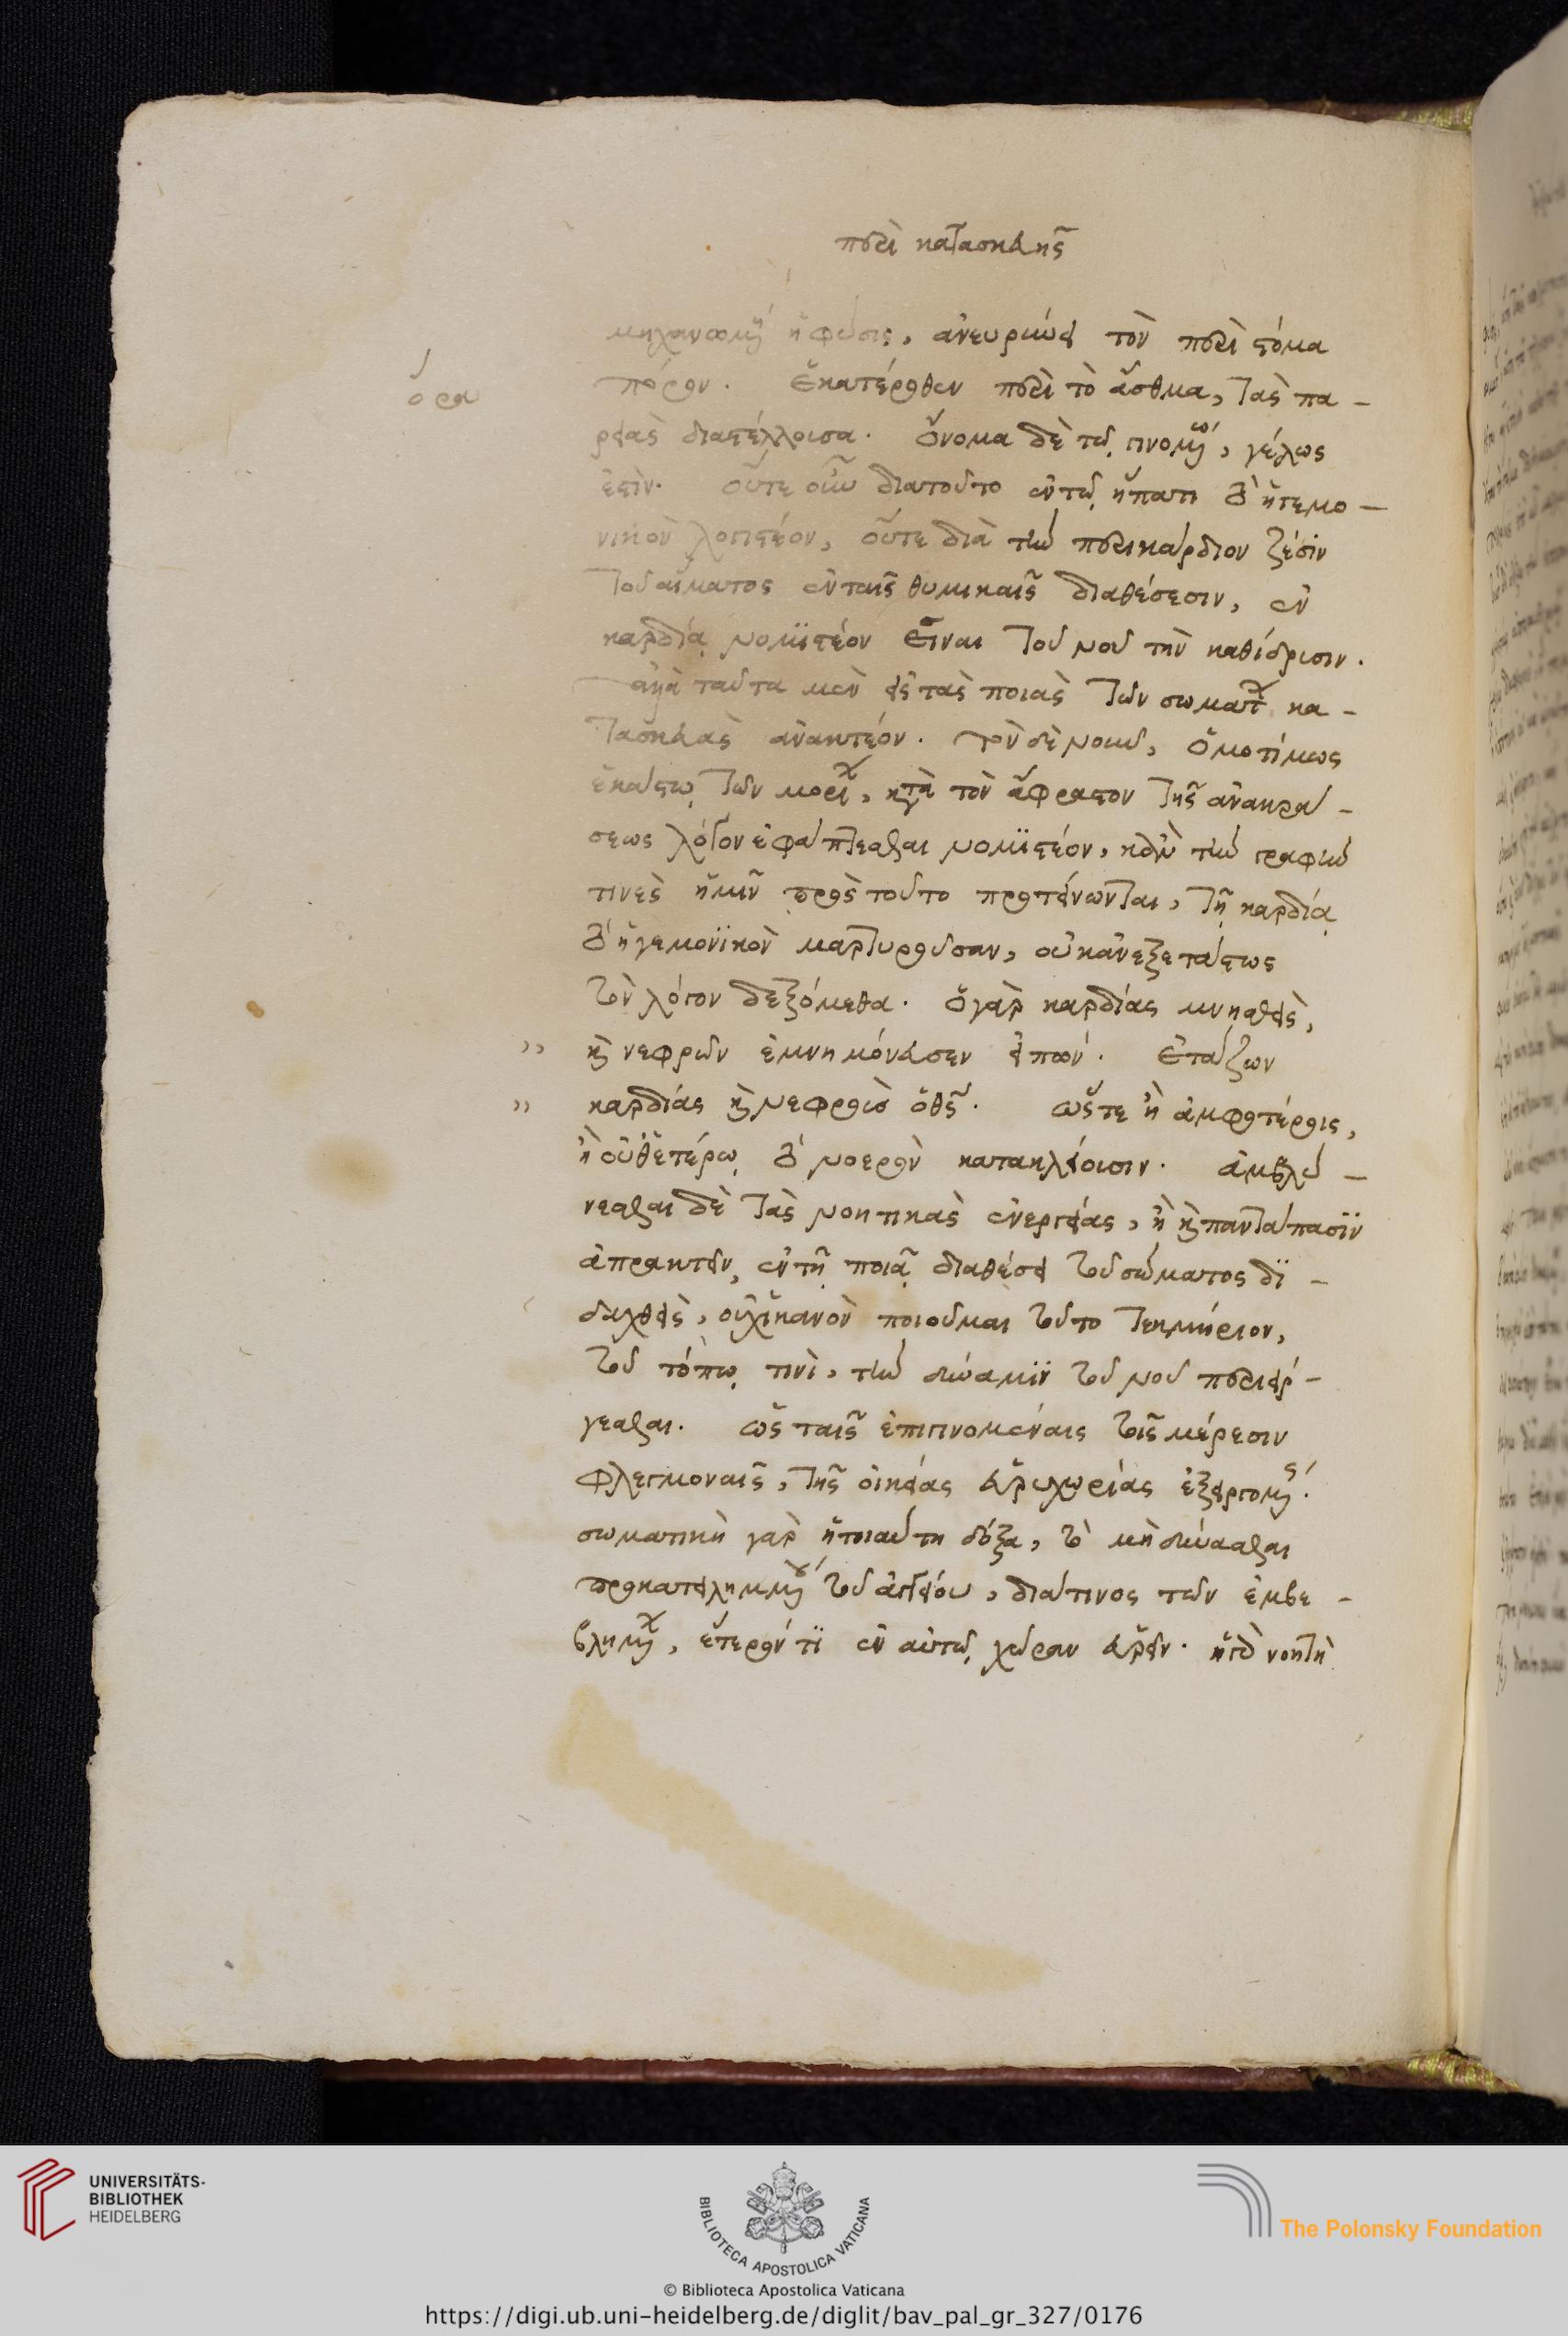 περὶ κατασκευῆς
μηχανωμένη ἡ φύσις, ἀνευρύνει τὸν περὶ στόμα
ὅρα
πόρον. ἑκατέρωθεν περὶ τὸ ἆσθμα, τὰς πα-
ρειὰς διαστέλλουσα. ὄνομα δὲ τῷ γινομένῳ, γέλως
ἐστίν. οὔτε οὖν διατοῦτο ἐν τῷ ἥπατι τὸ ἡγεμο-
νικὸν λογιστέον, οὔτε διὰ τὴν περικάρδιον ζέσιν
τοῦ αἵματος ἐν ταῖς θυμικαῖς διαθέσεσιν, ἐν
καρδίᾳ νομιστέον εἶναι τοῦ νοῦ τὴν καθίδρυσιν.
ἀλλὰ ταῦτα μὲν εἰς τὰς ποιὰς τῶν σωμάτων κα-
τασκευὰς ἀνακτέον. τὸν δὲ νοῦν, ὁμοτίμως
ἑκάστῳ τῶν μορίων, κατὰ τὸν ἄφραστον τῆς ἀνακρά-
σεως λόγον ἐφάπτεσθαι νομιστέον, κἂν τὴν γραφήν
τινες ἡμῖν πρὸς τοῦτο προτείνωνται, τῇ καρδίᾳ
τὸ ἡγεμονικὸν μαρτυροῦσαν, οὐκ ἀνεξετάστως
τὸν λόγον δεξόμεθα. ὁ γὰρ καρδίας μνησθεὶς,
›› καὶ νεφρῶν ἐμνημόνευσεν εἰπών. ἐτάζων
›› καρδίας καὶ νεφροὺς ὁ θεός. ὥστε ἢ ἀμφοτέροις,
ἢ οὐθετέρῳ τὸ νοερὸν κατακλείουσιν. ἀμβλύ-
νεσθαι δὲ τὰς νοητικὰς ἐνεργείας, ἢ καὶ πανταπασϊν
ἀπρακτεῖν, ἐν τῇ ποιᾷ διαθέσει τοῦ σώματος δϊ-
δαχθεὶς, οὐχ ἱκανὸν ποιοῦμαι τοῦτο τεκμήριον,
τοῦ τόπῳ τινὶ, τὴν δύναμϊν τοῦ νοῦ περιείρ-
γεσθαι. ὡς ταῖς ἐπιγινομέναις τοῖς μέρεσιν
φλεγμοναῖς, τῆς οἰκείας εὐρυχωρίας ἐξειργομένης.
σωματικὴ γὰρ ἡ τοιαύτη δόξα, τὸ μὴ δύνασθαι
προκατειλημμένου τοῦ ἀγγείου, διά τινος τῶν ἐμβε-
βλημένων, ἕτερόν τϊ ἐν αὐτῷ χώραν εὑρεῖν. ἡ γὰρ νοητὴ
UNIVERSITÄTS-
BIBLIOTHEK
HEIDELBERG
BIBLIOTECA APOSTOLICA VATICANA
The Polonsky Foundation
© Biblioteca Apostolica Vaticana
https://digi.ub.uni-heidelberg.de/diglit/bav_pal_gr_327/0176